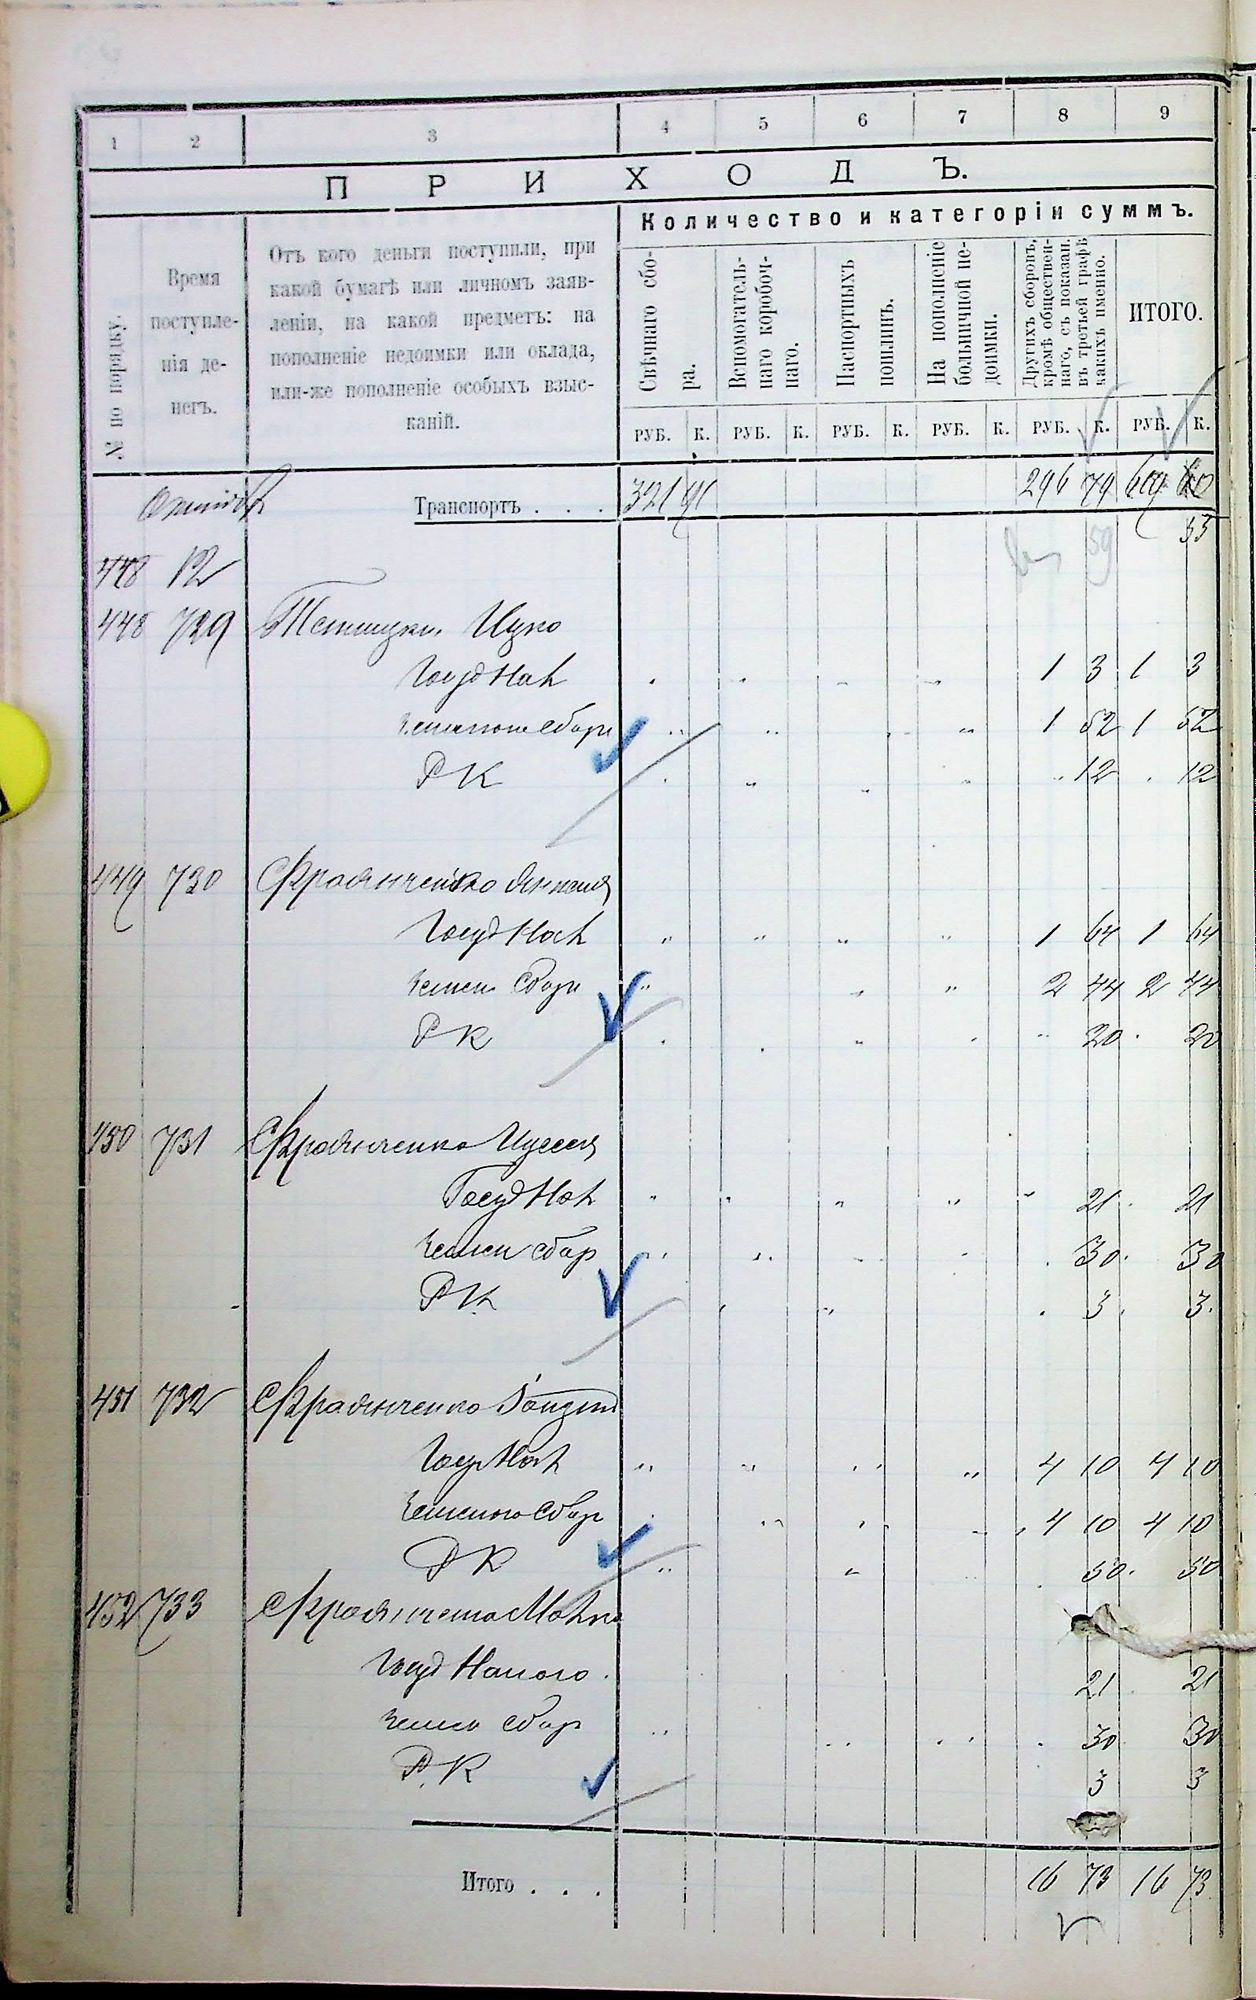 1 2 3 4 5 6 7 8 9
ПРИХОДЪ.
Количество и категоріи суммъ.
№ по порядку.
Время
поступле-
нія де-
негъ.
Отъ кого деньги поступили, при
какой бумагѣ или личномъ заяв-
леніи, на какой предметъ: на
пополненіе недоимки или оклада,
или-же пополненіе особыхъ взыс-
каній.
Свѣчнаго сбо-
ра.
Вспомогатель-
наго коробоч-
наго.
Паспортныхъ
пошлинъ.
На пополненіе
больничной не-
доимки.
Другихъ сборовъ,
кромѣ обществен-
наго, съ показан.
въ третьей графѣ
какихъ именно.
ИТОГО.
РУБ. К. РУБ. К. РУБ. К. РУБ. К. РУБ. К. РУБ. К.
Транспортъ . . . 321 91 296 79
53
59
448 12
448 729
Госуд Нал 1 3 1 3
Земского сбора 1 52 1 52
РК 12 12
449 730
Госуд Нал 1 64 1 64
Земск сбора 2 44 2 44
РК 20 20
450 731
Госуд Нал 21 21
Земск сбор 30 30
РК 3 3
451 732
Госуд Нал 4 10 4 10
Земского сбор 4 10 4 10
РК 50 50
452 733
Госуд Налого 21 21
Земск сбор 30 30
Р.К 3 3
Итого . . . 16 73 16 73